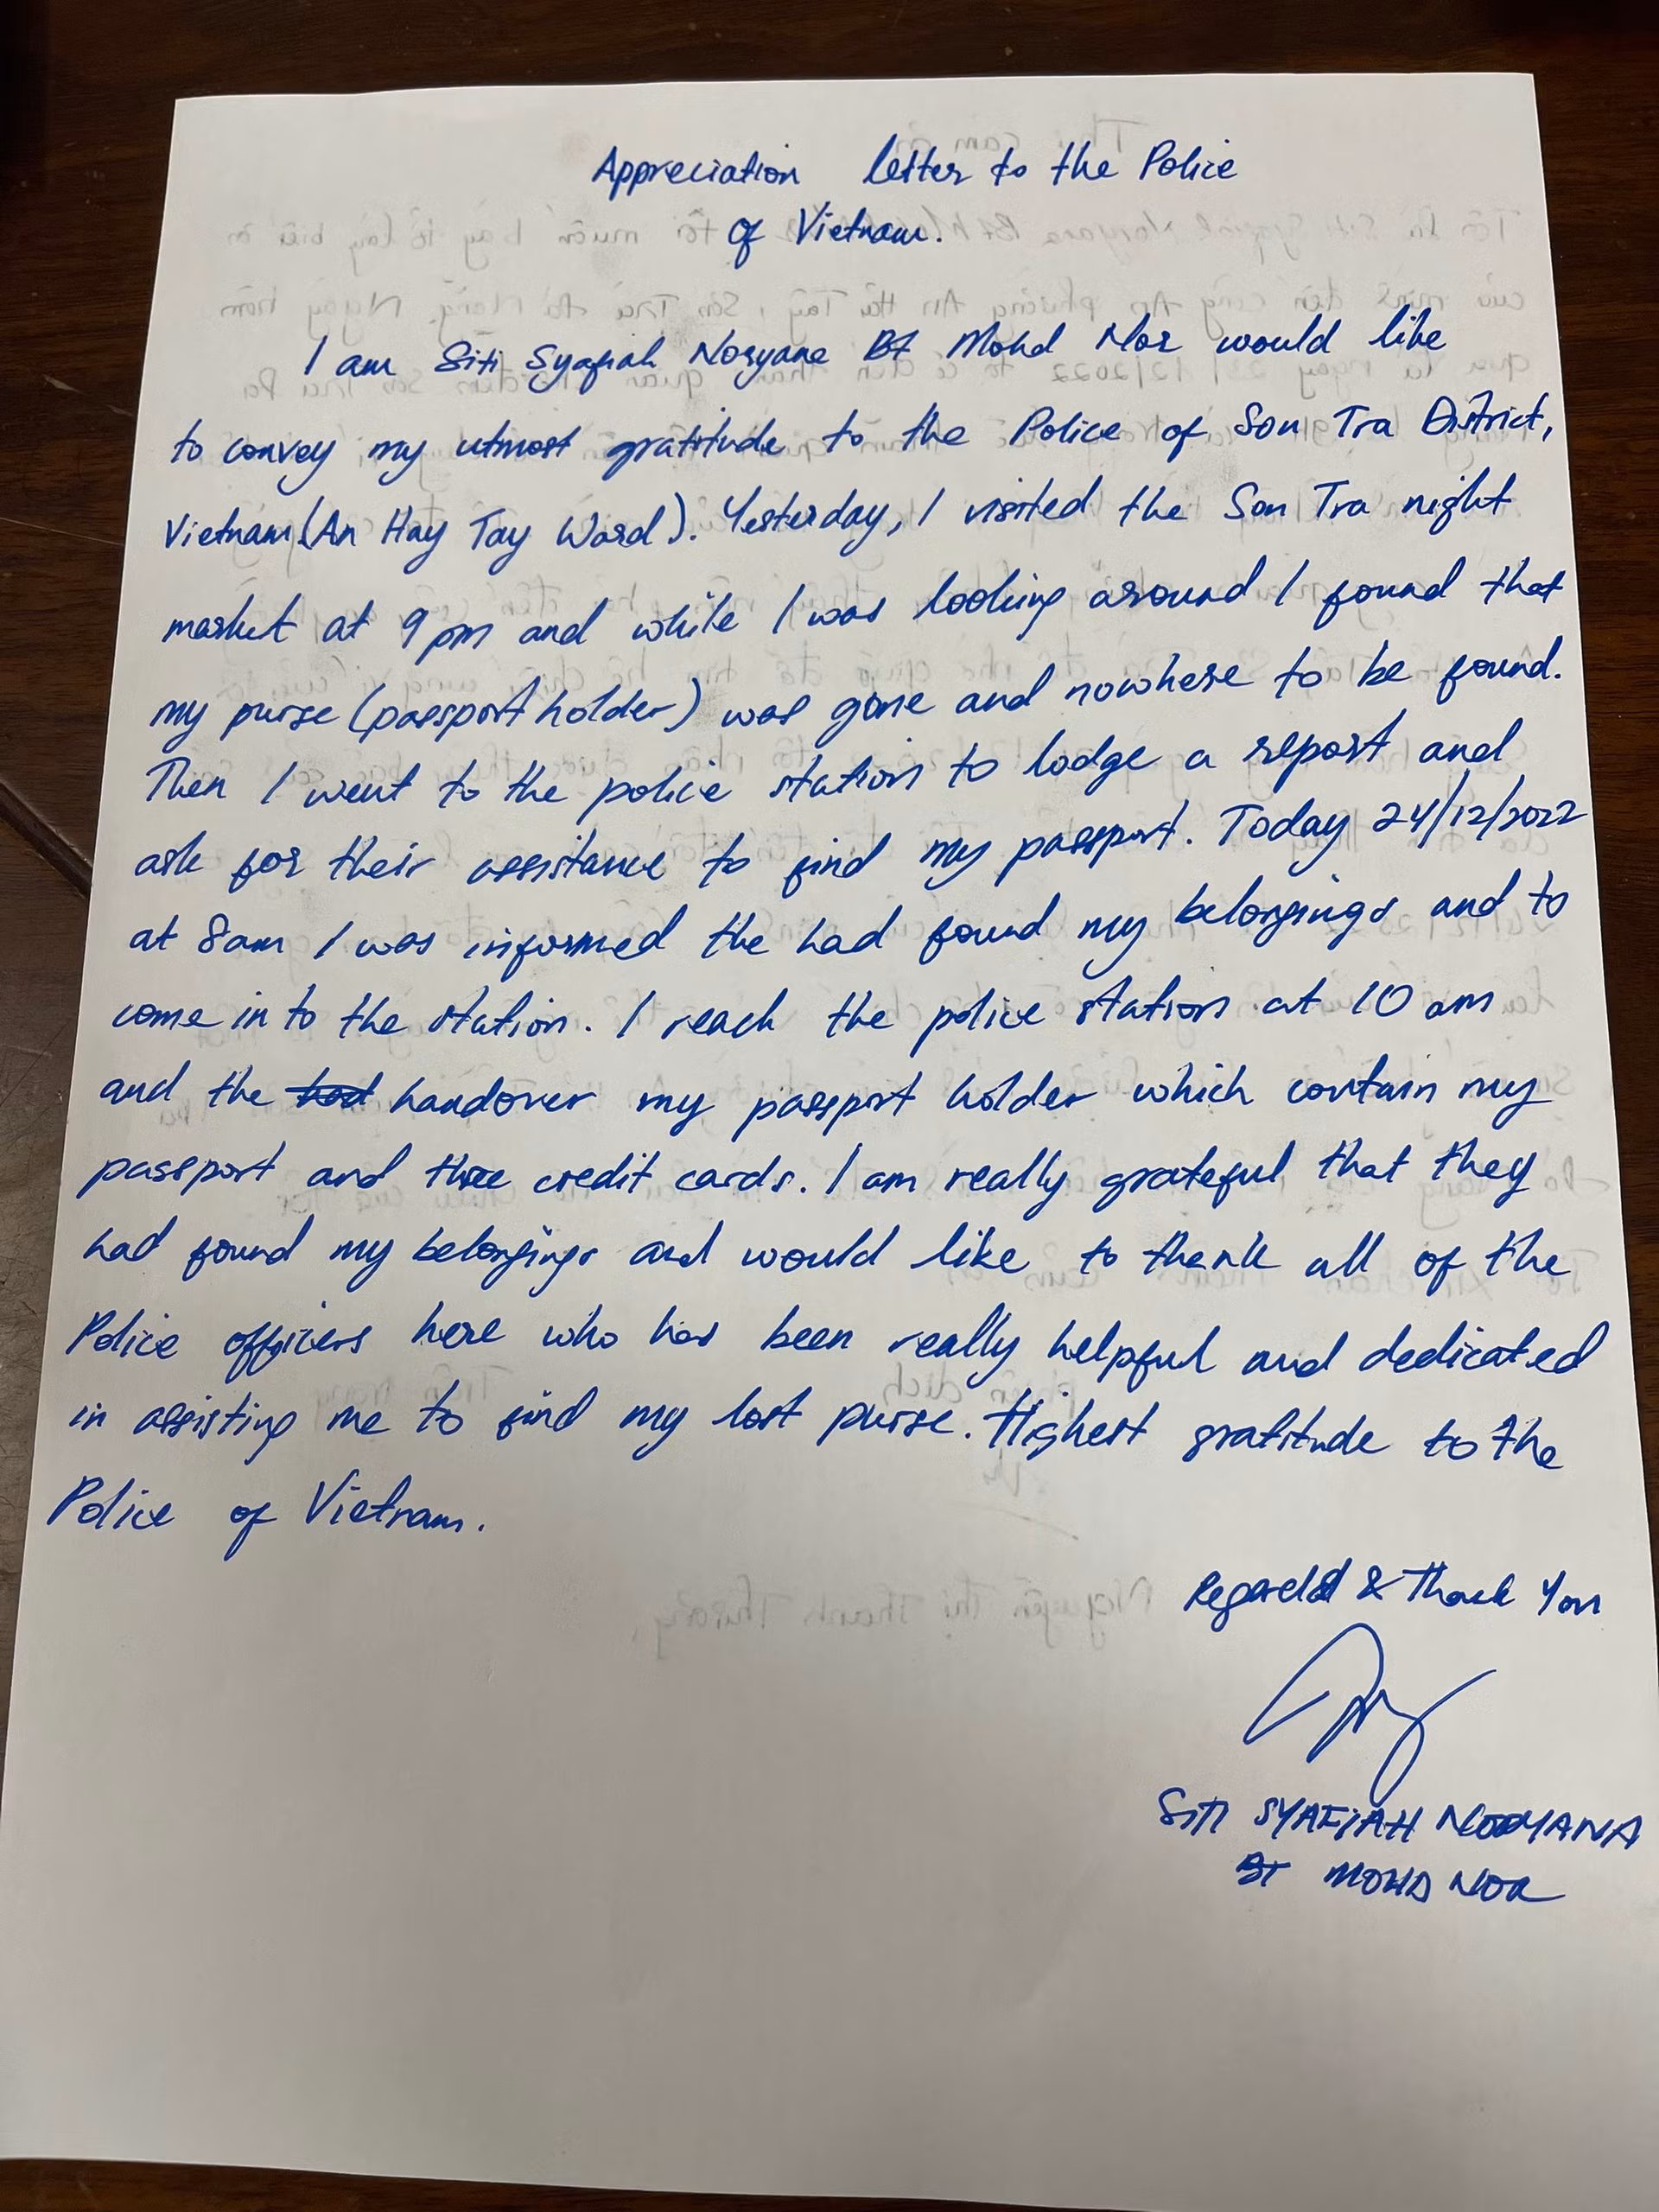 Appreciation letter to the Police
of Vietnam.
I am Siti Syafiah Noryane Bt Mohd Nor would like
to convey my utmost gratitude to the Police of Son Tra District,
Vietnam (An Hay Tay Ward). Yesterday, I visited the Son Tra night
market at 9 pm and while I was looking around I found that
my purse (passport holder) was gone and nowhere to be found.
Then I went to the police station to lodge a report and
ask for their assistance to find my passport. Today 24/12/2022
at 8am I was informed the had found my belongings and to
come in to the station. I reach the police station at 10 am
and the handover my passport holder which contain my
passport and three credit cards. I am really grateful that they
had found my belongings and would like to thank all of the
Police officers here who has been really helpful and dedicated
in assisting me to find my lost purse. Highest gratitude to the
Police of Vietnam.
Regards & Thank You
SITI SYAFIAH NORYANA
BT MOHD NOR